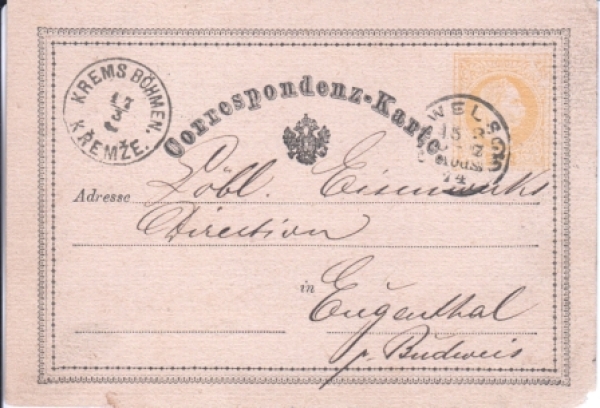 KREMS BÖHMEN.
17
3
KŘEMŽE.
Correspondenz-Karte
WELS
15 3
74
Adresse Löbl. Eisenwerks
Direction
in Eugenthal
p. Budweis